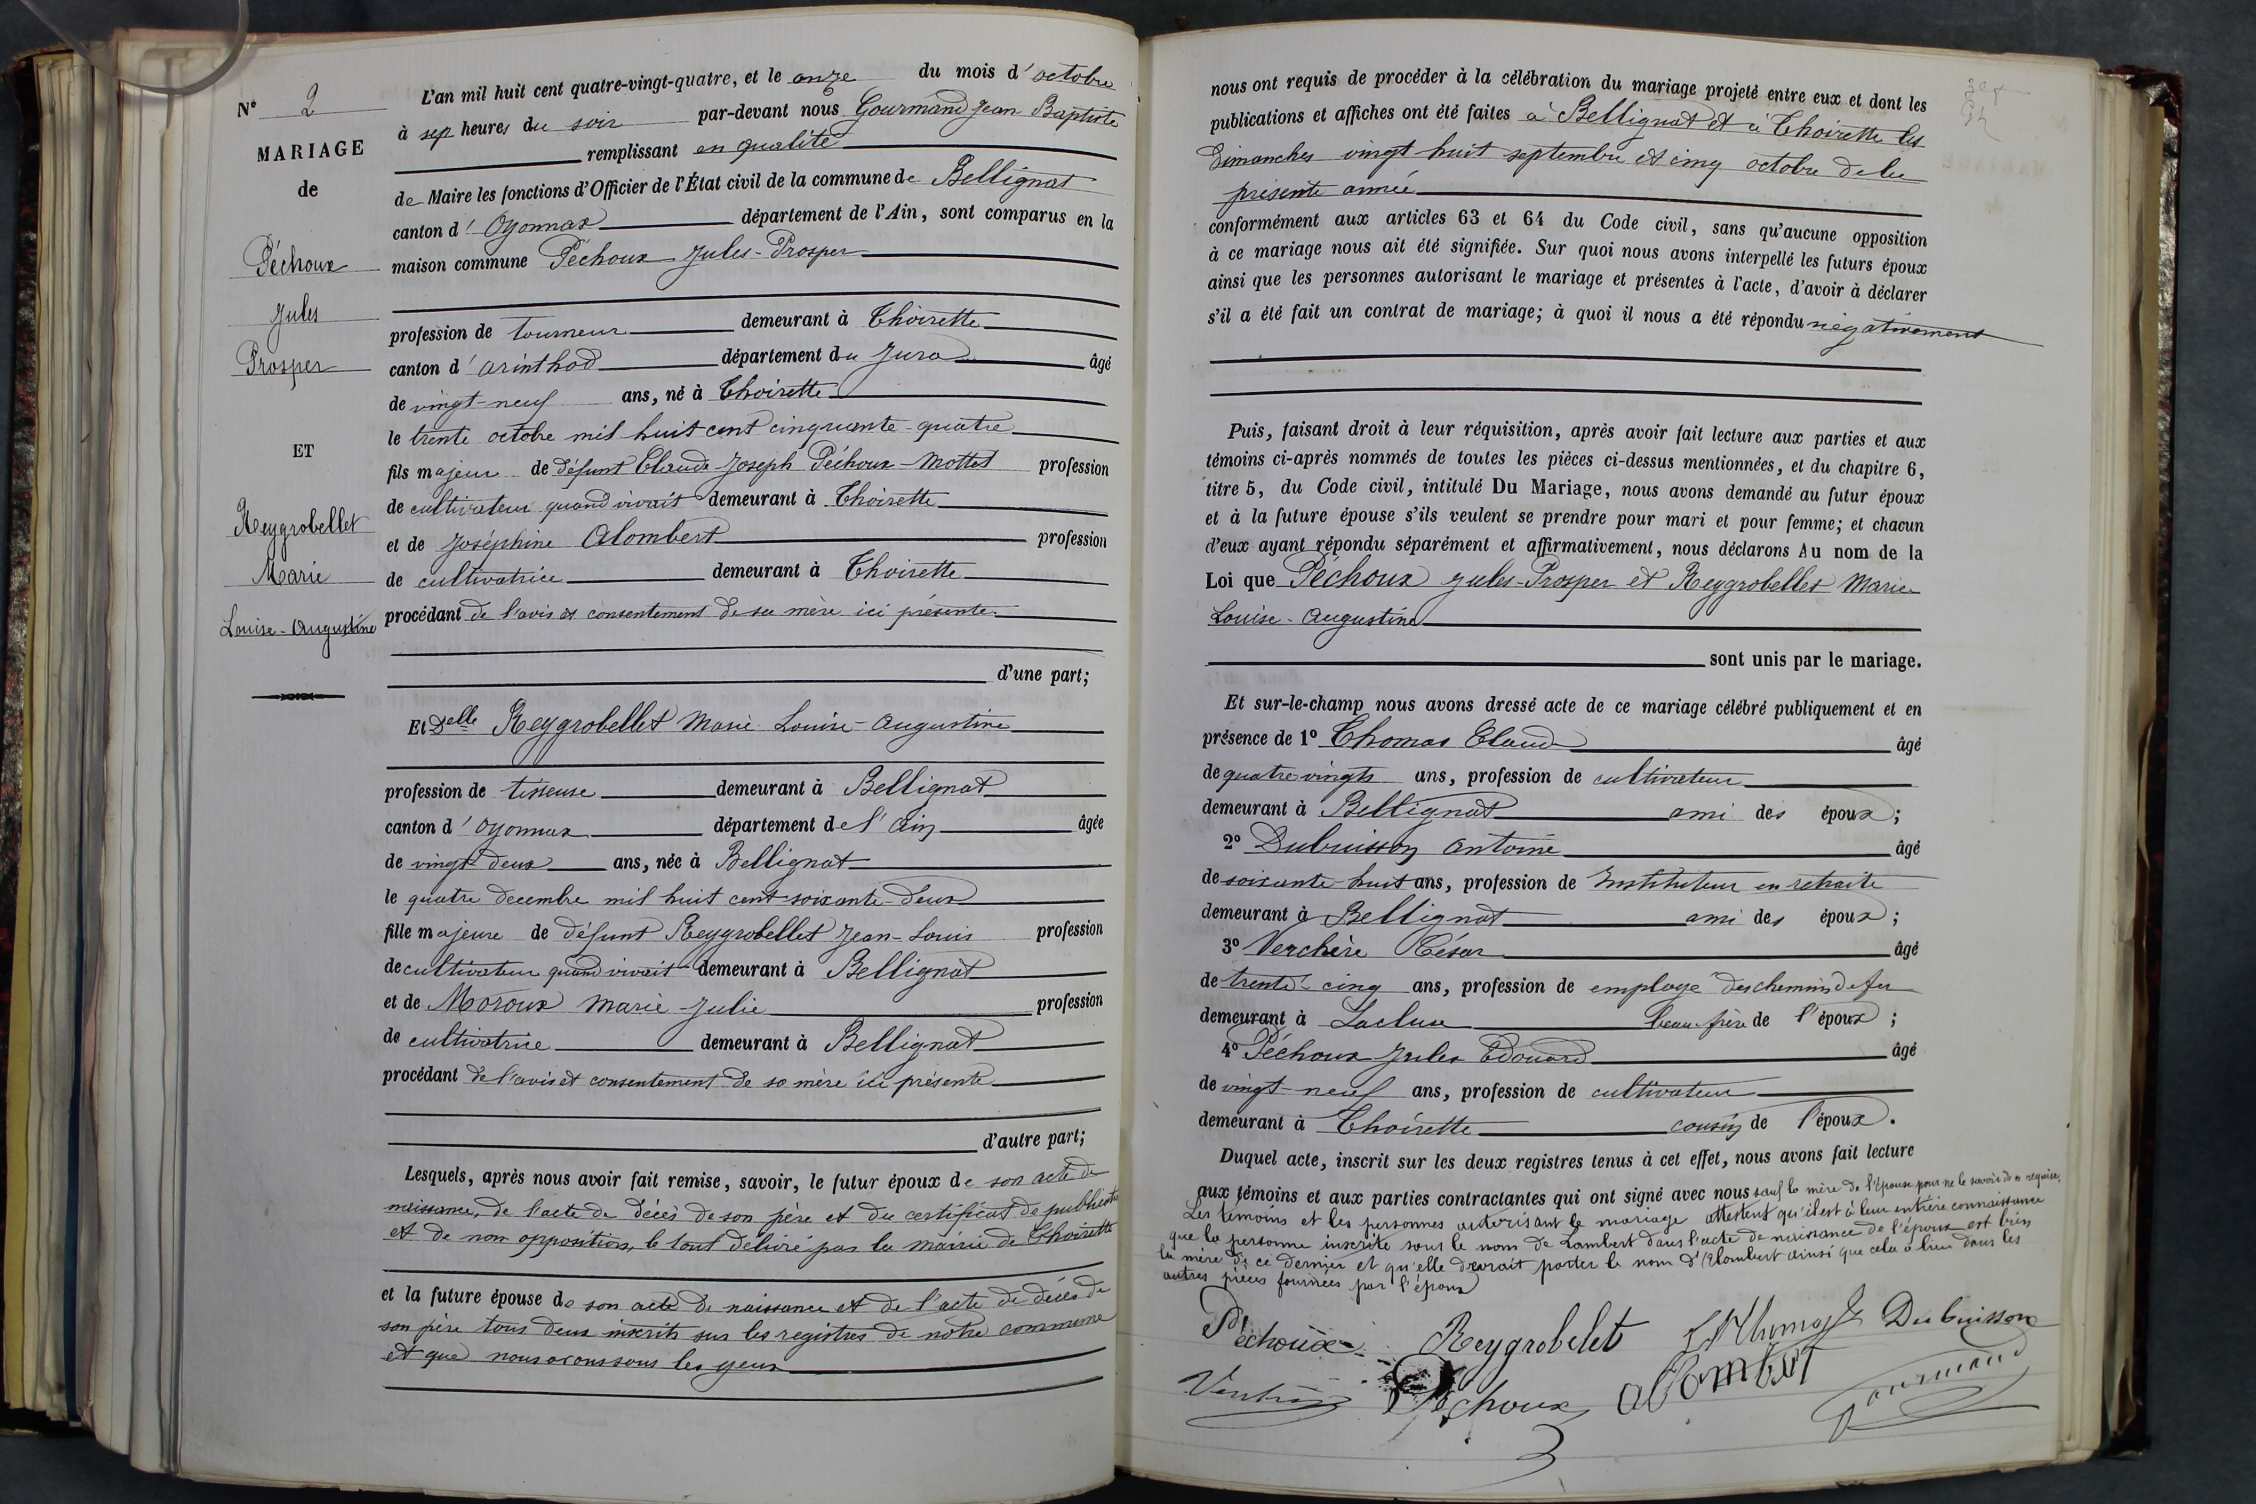 N° 2
MARIAGE
de
Péchoux
Jules
Prosper
ET
Reygrobellet
Marie
Louise-Augustine
L'an mil huit cent quatre-vingt-quatre, et le onze du mois d'octobre
à sep heures du soir par-devant nous Gourmand Jean Baptiste
remplissant en qualité
de Maire les fonctions d'Officier de l'État civil de la commune de Bellignat
canton d'Oyonnax département de l'Ain, sont comparus en la
maison commune Péchoux Jules-Prosper
profession de tourneur demeurant à Thoirette
canton d'arinthod département du Jura âgé
de vingt-neuf ans, né à Thoirette
le trente octobre mil huit cent cinquante-quatre
fils majeur de défunt Claude-Joseph Péchoux-Mottet profession
de cultivateur quand vivait demeurant à Thoirette
et de Joséphine Alombert profession
de cultivatrice demeurant à Thoirette
procédant de l'avis et consentement de sa mère ici présente
d'une part;
Et Delle Reygrobellet Marie Louise-Augustine
profession de tisseuse demeurant à Bellignat
canton d'Oyonnax département de l'Ain âgée
de vingt deux ans, née à Bellignat
le quatre decembre mil huit cent soixante-deux
fille majeure de défunt Reygrobellet Jean-Louis profession
de cultivateur quand vivait demeurant à Bellignat
et de Moroux Marie-Julie profession
de cultivatrice demeurant à Bellignat
procédant de l'avis et consentement de sa mère ici présente
d'autre part;
Lesquels, après nous avoir fait remise, savoir, le futur époux de son acte de
naissance, de l'acte de décès de son père et du certificat de publication
et de non opposition, le tout délivré par la mairie de Thoirette
et la future épouse de son acte de naissance et de l'acte de décès de
son père tous deux inscrits sur les registres de notre commune
et que nous avons sous les yeux
nous ont requis de procéder à la célébration du mariage projeté entre eux et dont les
publications et affiches ont été faites à Bellignat et à Thoirette les
Dimanches vingt huit septembre et cinq octobre de la
présente année
conformément aux articles 63 et 64 du Code civil, sans qu'aucune opposition
à ce mariage nous ait été signifiée. Sur quoi nous avons interpellé les futurs époux
ainsi que les personnes autorisant le mariage et présentes à l'acte, d'avoir à déclarer
s'il a été fait un contrat de mariage; à quoi il nous a été répondu négativement
Puis, faisant droit à leur réquisition, après avoir fait lecture aux parties et aux
témoins ci-après nommés de toutes les pièces ci-dessus mentionnées, et du chapitre 6,
titre 5, du Code civil, intitulé Du Mariage, nous avons demandé au futur époux
et à la future épouse s'ils veulent se prendre pour mari et pour femme; et chacun
d'eux ayant répondu séparément et affirmativement, nous déclarons Au nom de la
Loi que Péchoux Jules-Prosper et Reygrobellet Marie
Louise-Augustine
sont unis par le mariage.
Et sur-le-champ nous avons dressé acte de ce mariage célébré publiquement et en
présence de 1° Thomas Claude âgé
de quatre vingts ans, profession de cultivateur
demeurant à Bellignat ami des époux;
2° Dubuisson Antoine âgé
de soixante-huit ans, profession de Instituteur en retraite
demeurant à Bellignat ami des époux;
3° Verchère César âgé
de trente-cinq ans, profession de employé des chemins de fer
demeurant à Lacluse beau-frère de l'époux;
4° Péchoux Jules Edouard âgé
de vingt-neuf ans, profession de cultivateur
demeurant à Thoirette cousin de l'époux.
Duquel acte, inscrit sur les deux registres tenus à cet effet, nous avons fait lecture
aux témoins et aux parties contractantes qui ont signé avec nous sauf la mère de l'épouse pour ne le savoir de ce requise,
Les témoins et les personnes autorisant le mariage attestent qu'il est à leur entière connaissance
que la personne inscrite sous le nom de Lambert dans l'acte de naissance de l'époux est bien
la mère de ce dernier et qu'elle devrait porter le nom d'Alombert ainsi que cela a lieu dans les
autres pièces fournies par l'époux
Péchoux Reygrobelet Thomas Dubuisson
Verchère Péchoux alombert Gourmand